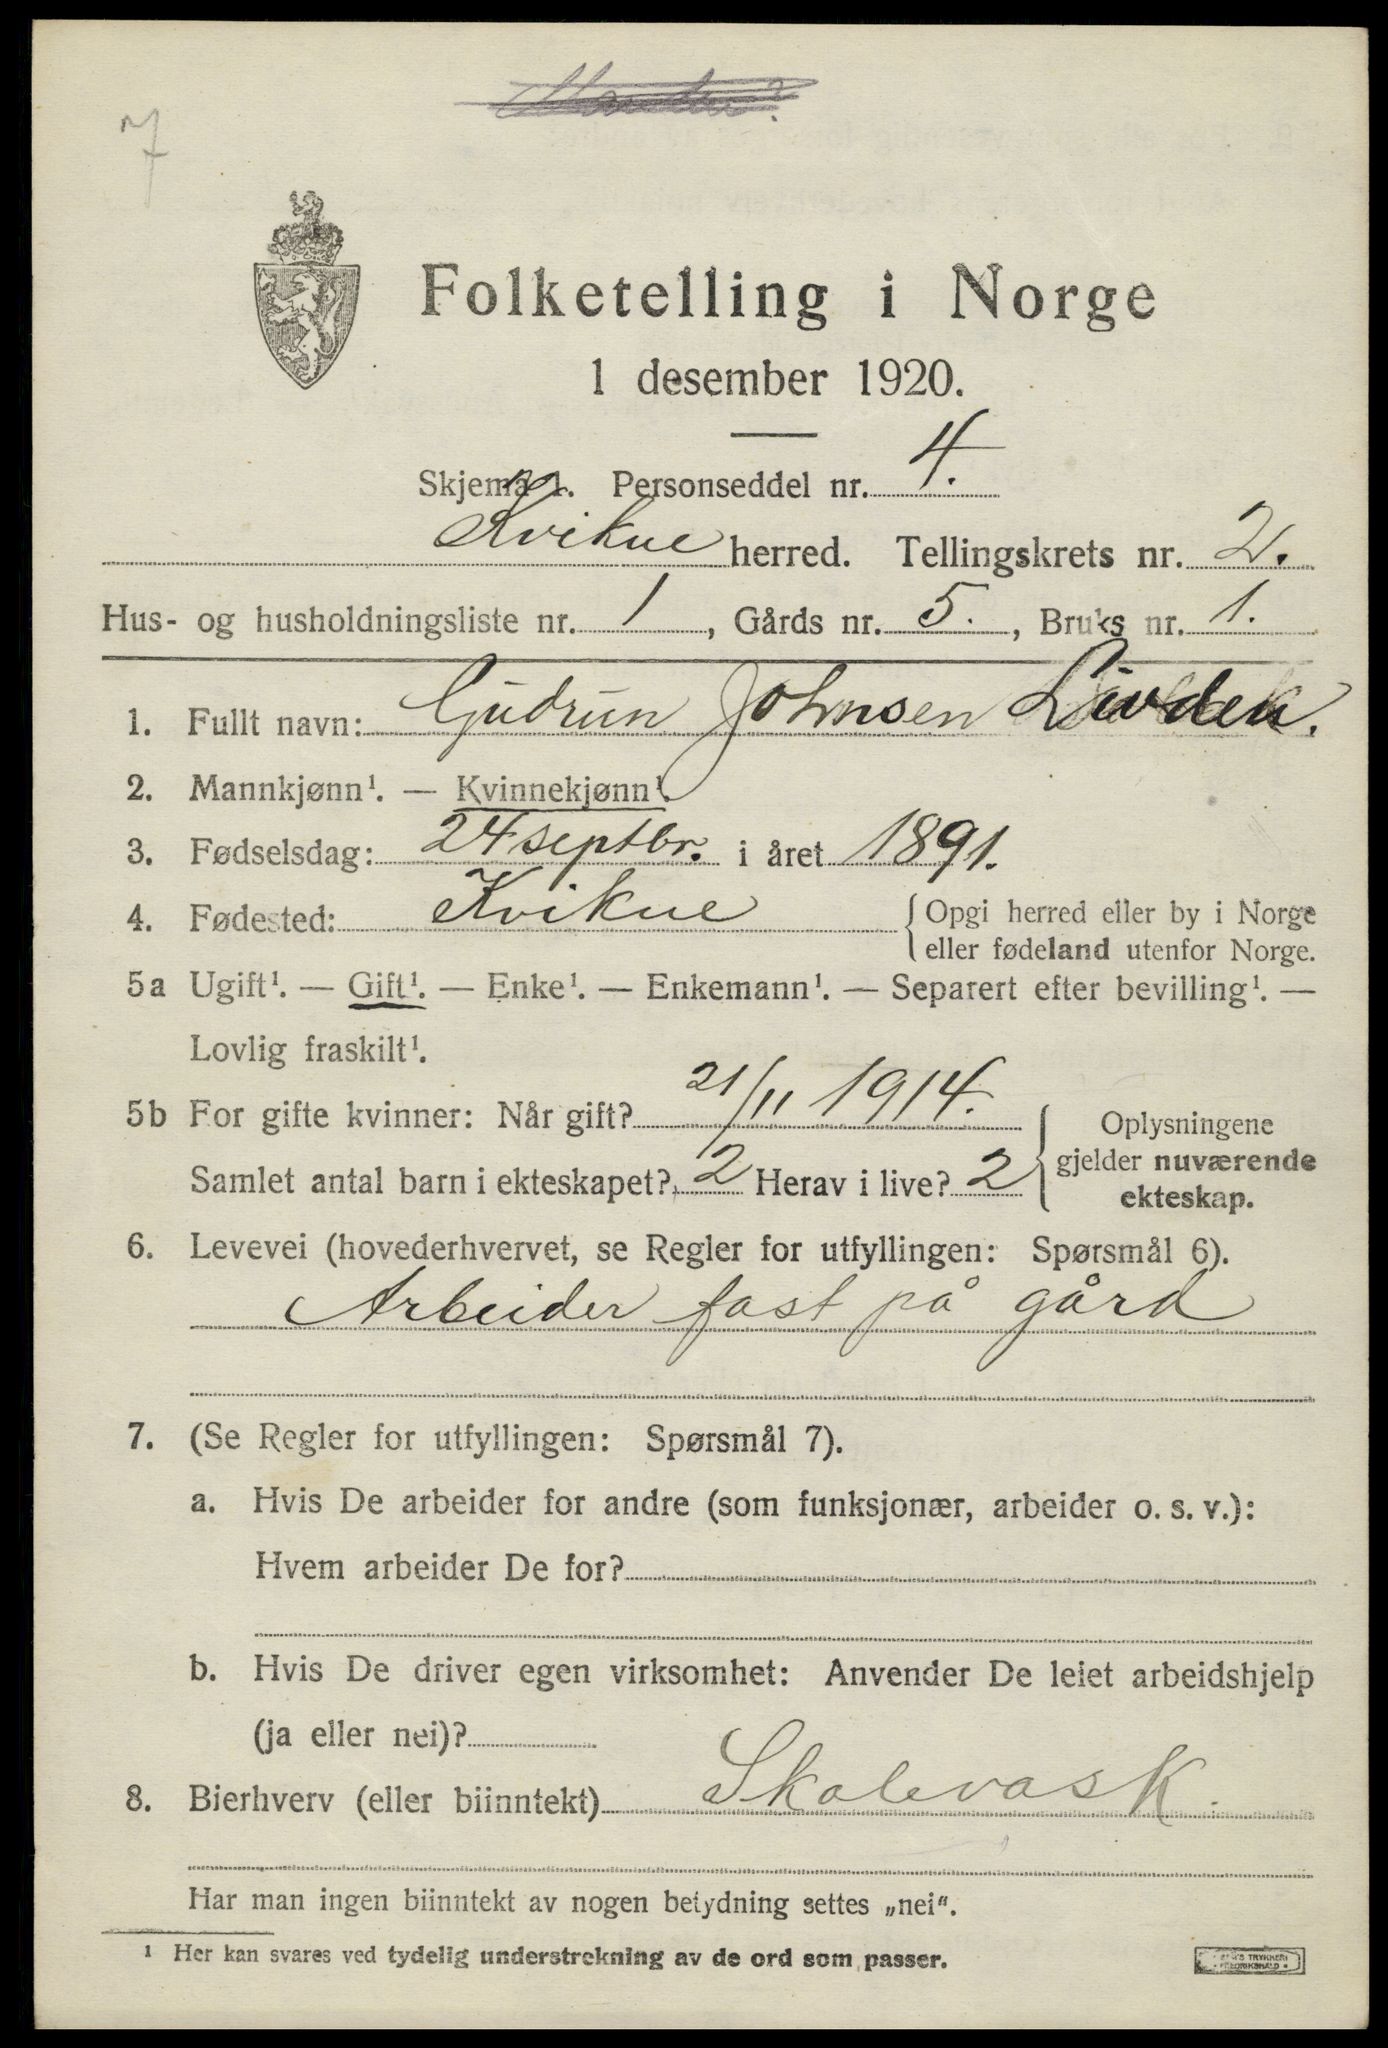 7
Folketelling i Norge
1 desember 1920.
Skjema 1. Personseddel nr. 4.
Kvikne herred. Tellingskrets nr. 2.
Hus- og husholdningsliste nr. 1, Gårds nr. 5., Bruks nr. 1.
1. Fullt navn: Gudrun Johnsen
2. Mannkjønn¹. — Kvinnekjønn¹.
3. Fødselsdag: 24 septbr. i året 1891.
4. Fødested: Kvikne {Opgi herred eller by i Norge
eller fødeland utenfor Norge.
5a Ugift¹. — Gift¹. — Enke¹. — Enkemann¹. — Separert efter bevilling¹. —
Lovlig fraskilt¹.
5b For gifte kvinner: Når gift? 21/11 1914.
Samlet antal barn i ekteskapet? 2 Herav i live? 2
Oplysningene
gjelder nuværende
ekteskap.
6. Levevei (hovederhvervet, se Regler for utfyllingen: Spørsmål 6).
Arbeider fast på gård
7. (Se Regler for utfyllingen: Spørsmål 7).
a. Hvis De arbeider for andre (som funksjonær, arbeider o. s. v.):
Hvem arbeider De for?
b. Hvis De driver egen virksomhet: Anvender De leiet arbeidshjelp
(ja eller nei)?
8. Bierhverv (eller biinntekt) Skolevask.
Har man ingen biinntekt av nogen betydning settes „nei“.
¹ Her kan svares ved tydelig understrekning av de ord som passer.
TRYKKERI
FREDRIKSHALD